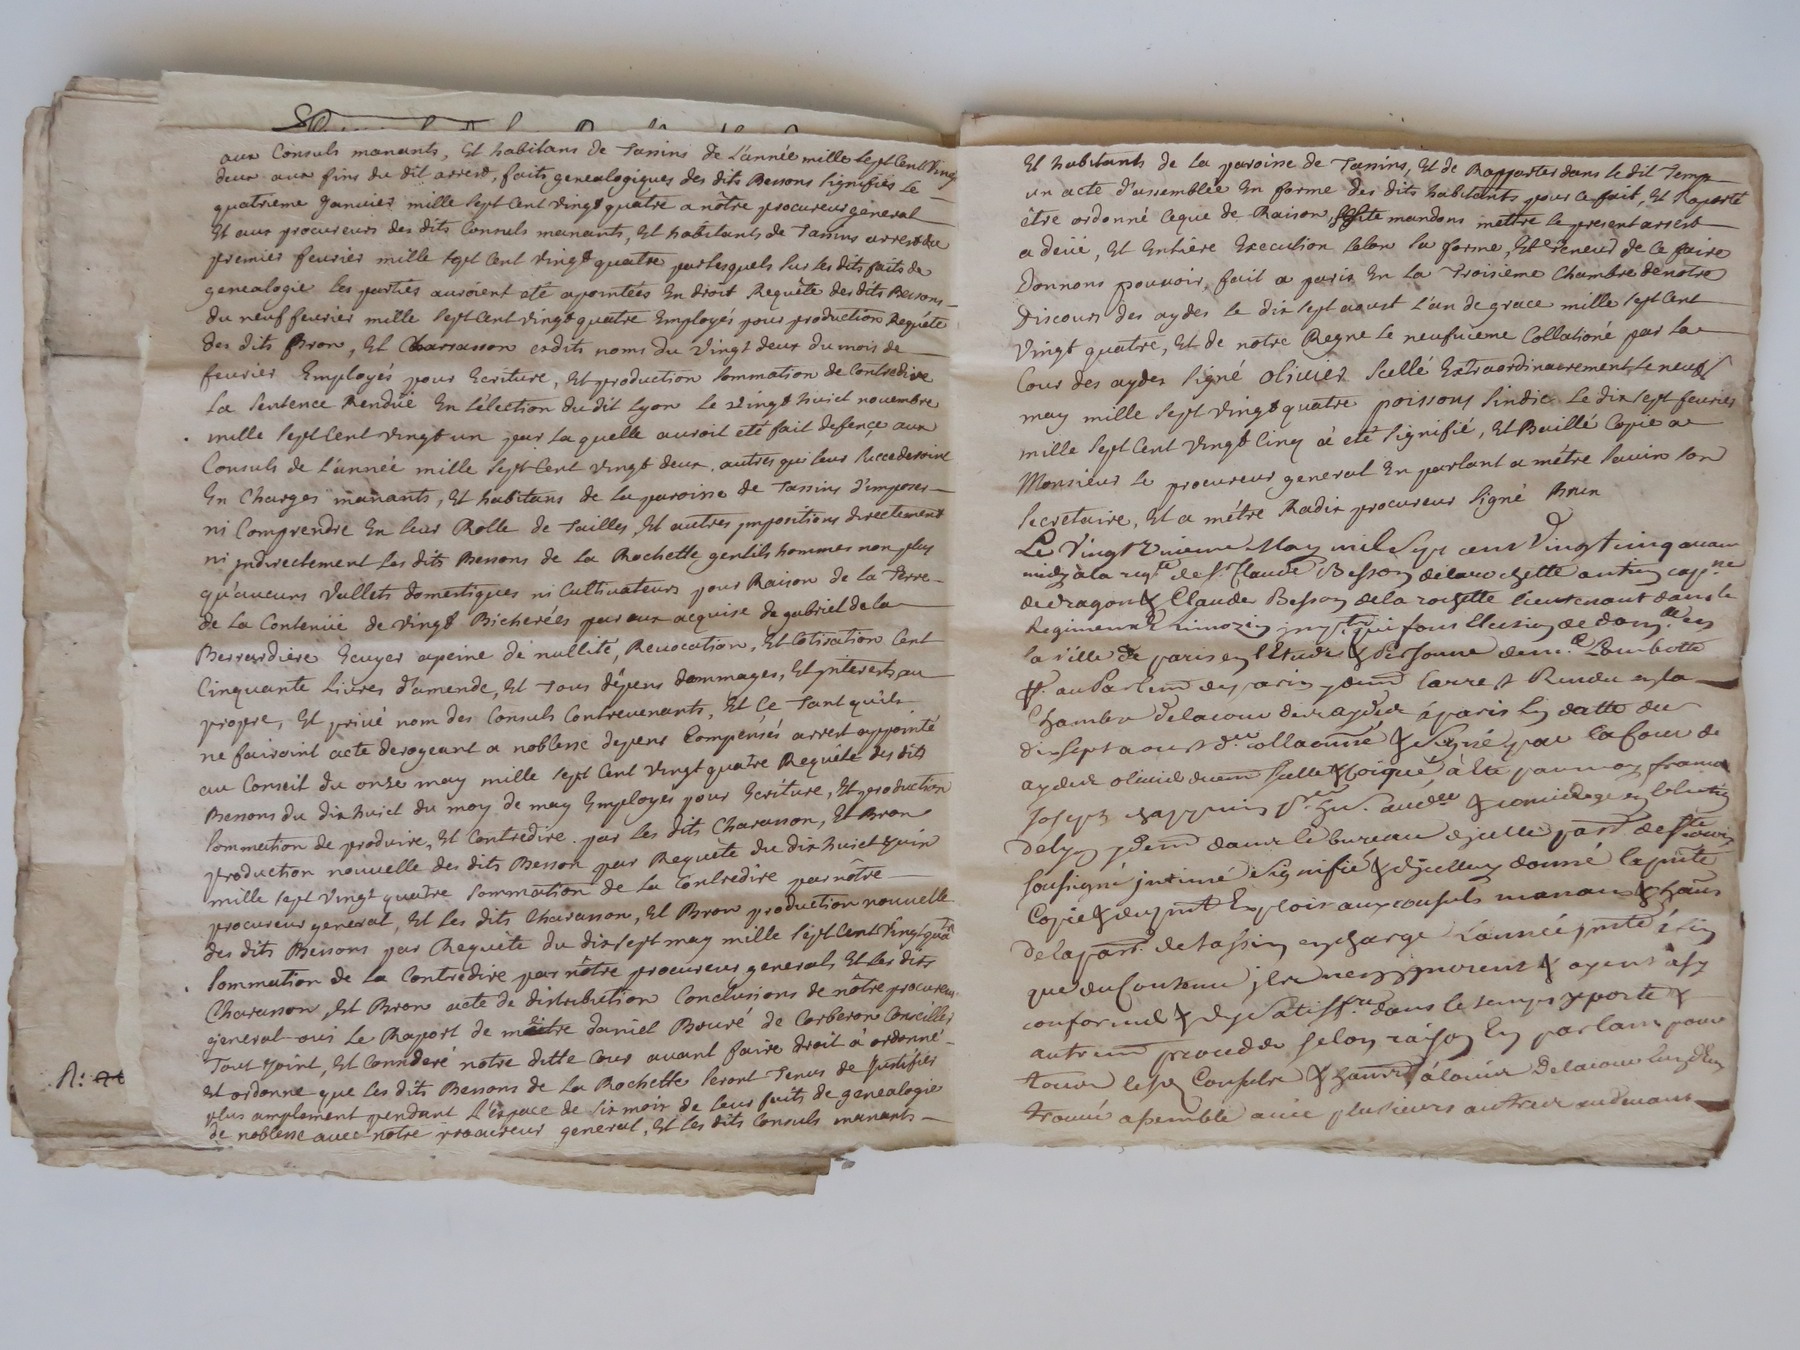 aux Consuls manants, Et habitans de Tassins de L'année mille sept Cent vingt
deux aux fins du dit arrest, faits genealogiques des dits Bessons signifiés Le
quatrieme Janvier mille sept Cent vingt quatre a notre procureur general
Et aux procureurs des dits Consuls manants, Et habitants de Tassins arrest du
premier fevrier mille sept Cent vingt quatre par lesquels sur les dits faits de
genealogie les parties auroient eté apointées En droit Requête des dits Bessons
du neuf fevrier mille sept Cent vingt quatre Employés pour production Requête
des dits Bron, Et Charasson esdits noms du vingt deux du mois de
fevrier Employés pour Ecriture, Et production sommation de Contredire
La sentence Rendüe En L'élection du dit Lyon Le vingt huict novembre
mille sept Cent vingt un par Laquelle auroit eté fait defençe aux
Consuls de L'année mille sept Cent vingt deux, autres qui leur succederoint
En Charges manants, Et habitans de La paroisse de Tassins d'imposer
ni Comprendre En leur Rolle de Tailles, Et autres jmpositions directement
ni jndirectement Les dits Bessons de La Rochette gentils hommes non plus
qu'aucuns vallets domestiques ni Cultivateurs pour Raison de la Terre
de La Contenüe de vingt Bicherées par eux acquise de gabriel de la
Berrardiere Ecuyer apeine de nullité, Revocation, Et Cotisation Cent
Cinquante Livres d'amende, Et tous dépens dommages, Et jnterests au
propre, Et privé nom des Consuls Contrevenants, Et Ce Tant quils
ne fairoint acte derogeant a noblesse depens Compensés arrest appointé
au Conseil du onze may mille sept Cent vingt quatre Requête des dits
Bessons du dix huict du moy de may Employés pour Ecriture, Et production
sommation de produire, Et Contredire par les dits Charasson, Et Bron
production nouvelle des dits Besson par Requête du dix huict juin
mille sept vingt quatre sommation de La Contredire par nôtre
procureur general, Et Les dits Charasson, Et Bron production nouvelle
des dits Bessons par Requête du dix sept may mille sept Cent vingt quatre
sommation de La Contredire par nôtre procureur general, Et Les dits
Charasson, Et Bron acte de distribution Conclusions de nôtre procureur
general ouis Le Raport de maître daniel Bouré de Corberon Conseiller
Tout joint, Et Consideré notre ditte Cour avant faire droit à ordonné
Et ordonne que Les dits Bessons de La Rochette seront Tenus de justifier
plus amplement pendant L'espace de six mois de leur faits de genealogie
de noblesse avec notre procureur general, Et Les dits Consuls manants
Et habitants de La paroisse de Tassins, Et de Rapporter dans le dit Temps
un acte d'assemblée En forme des dits habitants pour Ce fait, Et Raporté
être ordonné Ceque de Raison, mandons mettre Le present arrest
a deüe, Et Entière Execution selon sa forme, Et teneur de Ce faire
Donnons pouvoir, fait a paris En La Troisieme Chambre de notre
Discours des aydes Le dix sept aoust L'an de grace mille sept Cent
Vingt quatre, Et de notre Regne Le neufuieme Collationé par La
Cour des aydes signé olivier scellé Extraordinairement Le neuf
may mille sept vingt quatre poissons sindic Le dix sept fevrier
mille sept Cent vingt Cinq à eté signifié, Et Baillé Copie a
Monsieur Le procureur general En parlant a métre Savin son
Secretaire, Et a métre Radix procureur signé Brun
Le Vingt May mil sept cent Vingt cinq avant
midy à la reqte de Sr. Claude Besson delarochette antien cappne
de dragons & Claude Besson de la rochette lieutenant dans le
Regiment Limozin qui font Election de domlle en
la ville de paris en l'Etude & personne de me
pr. au Parlemt de paris larrest Rendu en la
Chambre de la cour des aydes à paris En datte du
dix sept aoust der collationné & signé par la Cour de
ayder olivier scellé par moy francois
Joseph &
de lyon dans le bureau
soussigné jntimé signifié & donné la pnte
Copie & du pnt Exploit aux consuls manans & hans
de la parsse de tassin en charge l'année pnte à fin
que du Contenu jls n'en jgnorent & ayent a sy
conformer & dans le temps y porté &
autremt proceddé selon raison En parlant pour
tous lesd Consuls & hans à
trouvé assemblé avec plusieurs autres
N: